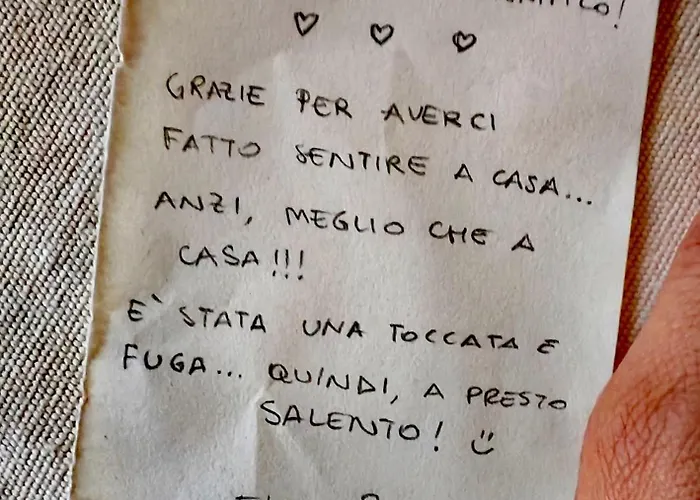 ♡ ♡ ♡
GRAZIE PER AVERCI
FATTO SENTIRE A CASA...
ANZI, MEGLIO CHE A
CASA!!!
E` STATA UNA TOCCATA E
FUGA... QUINDI, A PRESTO
SALENTO! :)